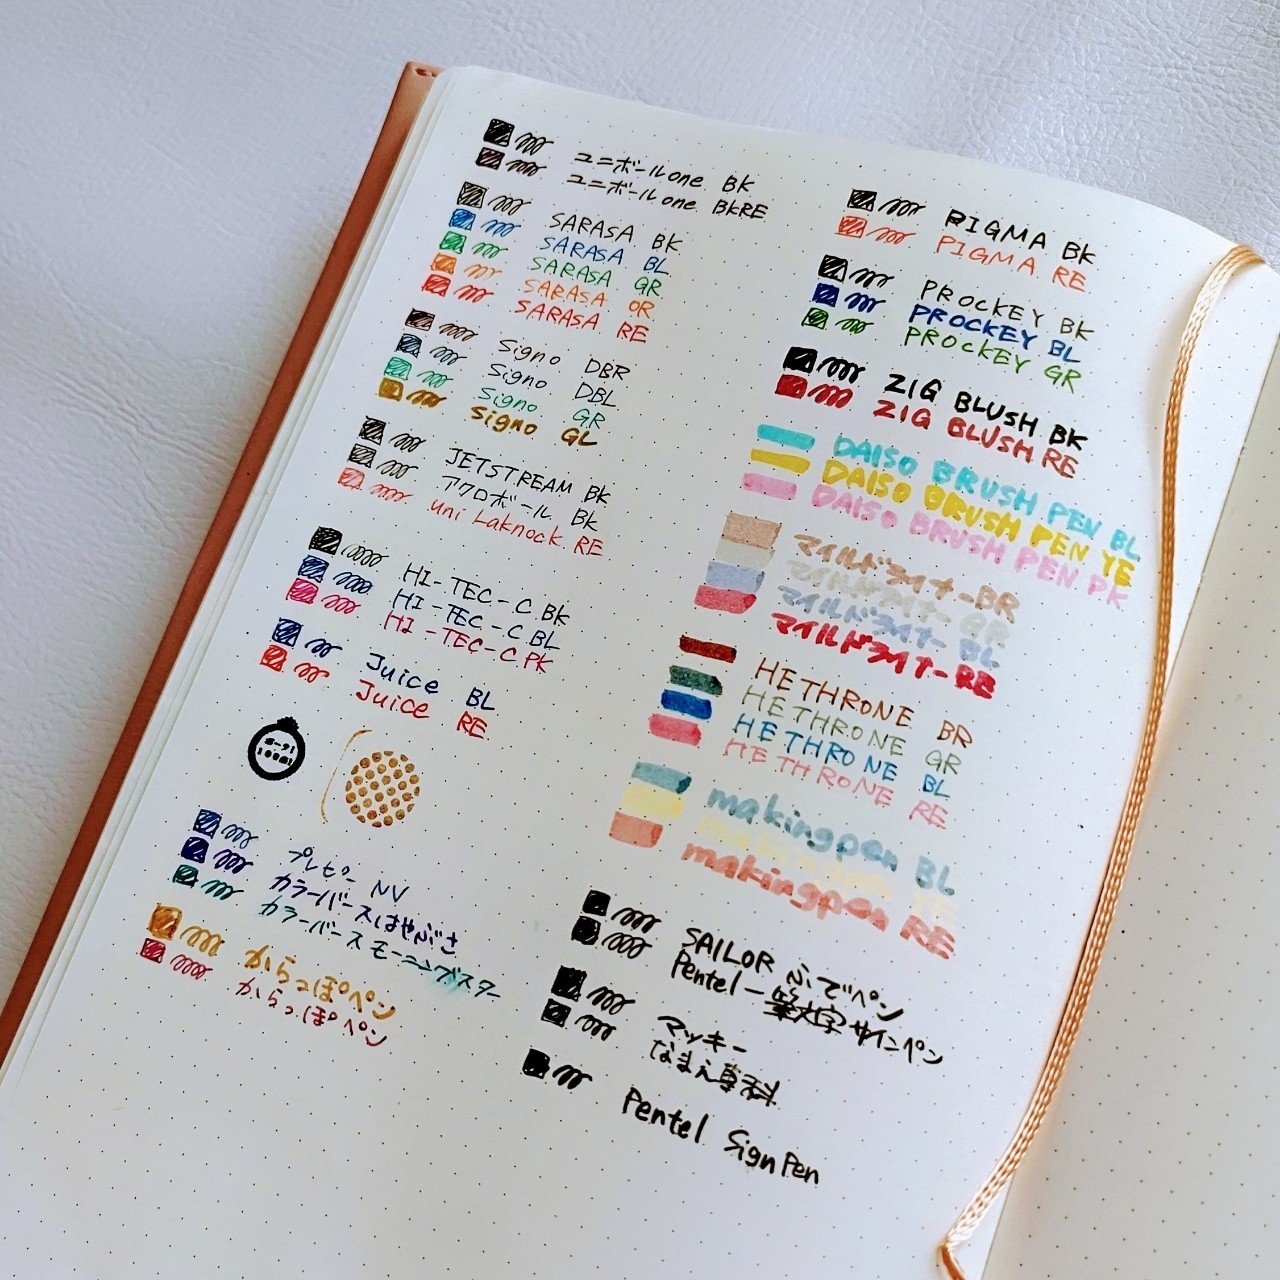 ユニボールone BK
ユニボールone BKRE
SARASA BK
SARASA BL
SARASA GR
SARASA OR
SARASA RE
Signo DBR
Signo DBL
Signo GR
Signo GL
JETSTREAM BK
アクロボール BK
uni Laknock RE
HI-TEC-C BK
HI-TEC-C BL
HI-TEC-C PK
Juice BL
Juice RE
プレピー NV
カラーバースはやぶさ
カラーバース モーニングスター
からっぽペン
からっぽペン
PIGMA BK
PIGMA RE
PROCKEY BK
PROCKEY BL
PROCKEY GR
ZIG BLUSH BK
ZIG BLUSH RE
DAISO BRUSH PEN BL
DAISO BRUSH PEN YE
DAISO BRUSH PEN PK
マイルドライナーBR
マイルドライナー GR
マイルドライナー BL
マイルドライナー RE
HETHRONE BR
HETHRONE GR
HETHRONE BL
HETHRONE RE
makingpen BL
YE
makingpen RE
SAILOR ふでペン
Pentel サインペン
マッキー
なまえ専科
Pentel Sign Pen